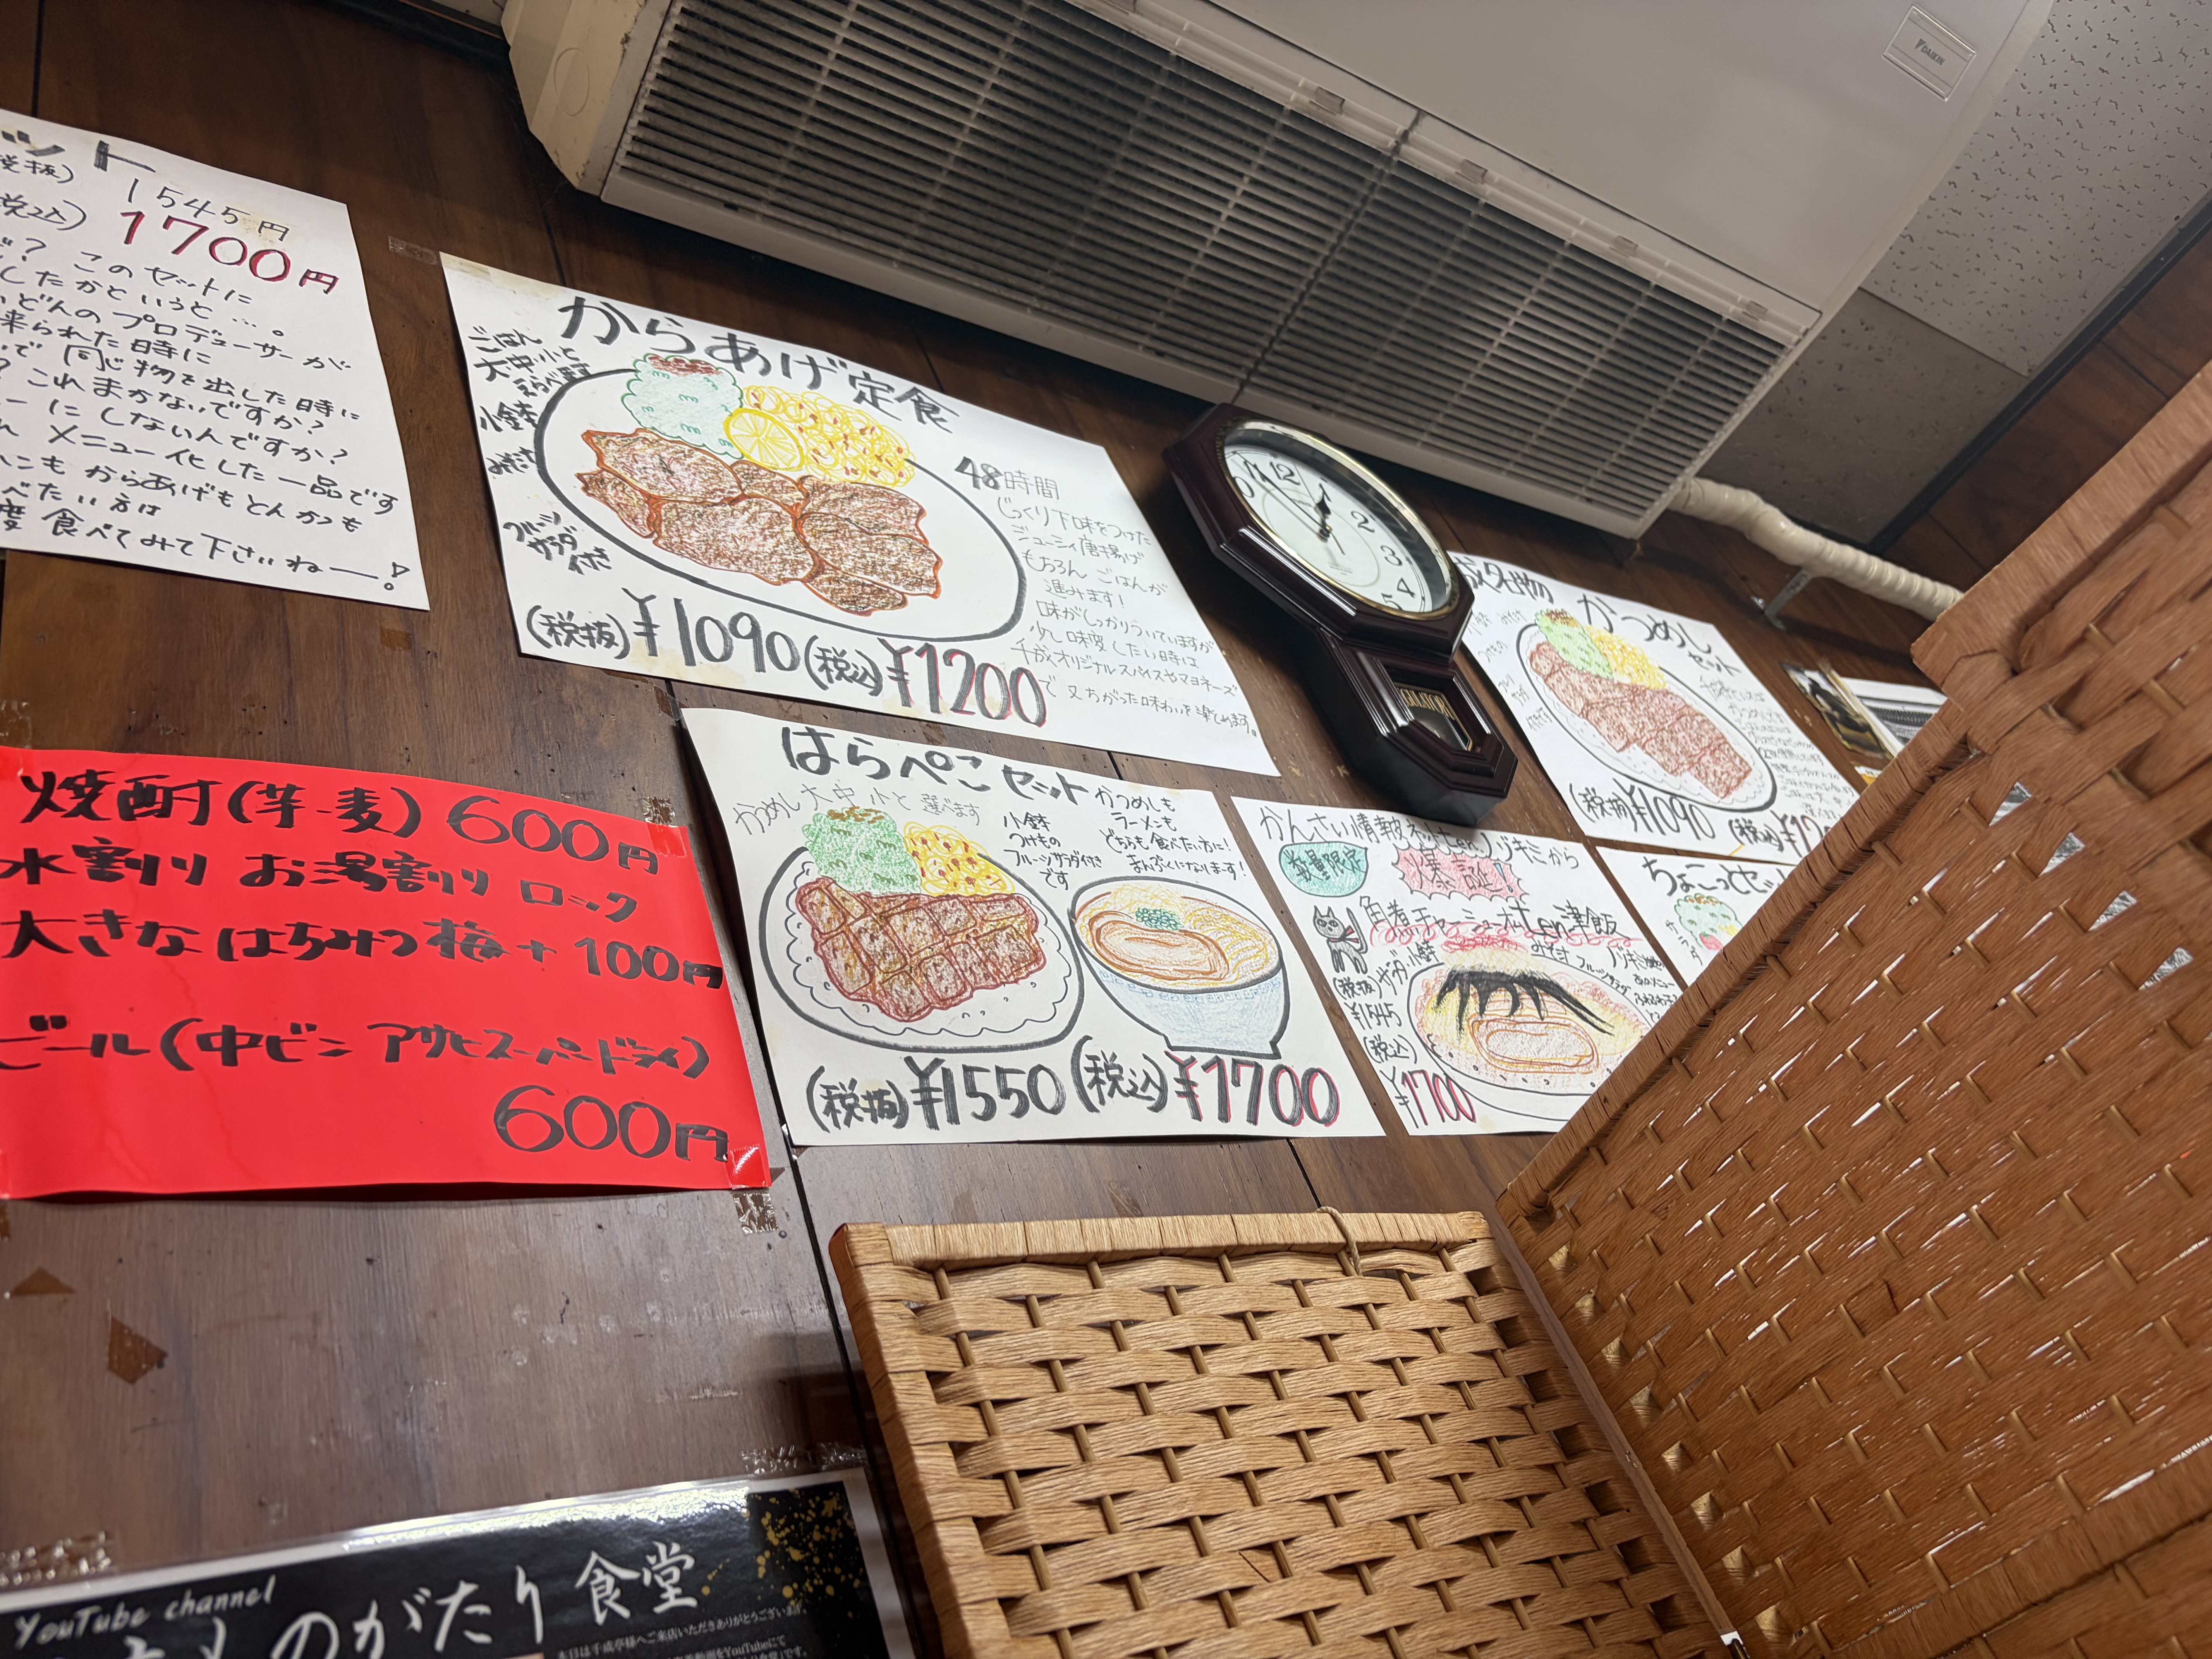 ット
税抜) 1545円
税込) 1700円
? このセットに
したかというと…。
どんのプロデューサーが
来られた時に
で同じ物を出した時に
? これまかないですか?
ーにしないんですか?
メニュー化した一品です
も からあげもとんかつも
べたい方は
度食べてみて下さいねー!
からあげ定食
ごはん
大中小と
えらべます
小鉢
みそ汁
フルーツ
サラダ
付き
48時間
じっくり下味をつけた
ジューシィ唐揚げ
もちろん ごはんが
進みます!
味がしっかりついていますが
少し味変したい時は
千成オリジナルスパイスやマヨネーズ
で又ちがった味わいを楽しめます。
(税抜)¥1090(税込)¥1200
名物 かつめし
セット
(税抜)¥1090 (税込)
焼酎(芋・麦) 600円
水割り お湯割り ロック
大きなはちみつ梅+100円
ビール(中ビン アサヒスーパードライ)
600円
はらぺこセット
かつめし大中小と選べます
小鉢
つけもの
フルーツサラダ付き
です
かつめしも
ラーメンも
どちらも食べたい方に!
まんぷくになります!
(税抜)¥1550(税込)¥1700
かんさい情報ネットten.ノヅキミから
数量限定
爆誕!
角煮チャーシューのせten津飯
サラダ 小鉢
みそ汁
(税抜)
¥1545
(税込)
¥1700
ちょこっとセット
サラダ
DAIKIN
12
2
3
4
5
YouTube channel
ものがたり食堂
本日は千成亭様へご来店いただきありがとうございます。